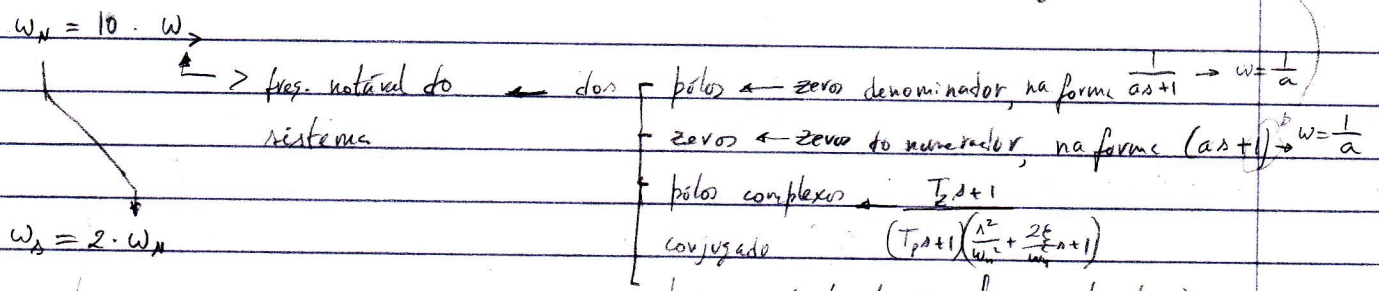 ω_N = 10 · ω_>
> freq. notável do ← dos pólos ← zeros denominador, na forma 1/(as+1) → ω = 1/a
sistema
zeros ← zeros do numerador, na forma (as+1) → ω = 1/a
pólos complexos conjugado ← (T_z s+1)/((T_p s+1)(s²/ω_n² + 2ξ/ω_n s+1))
ω_s = 2 · ω_N